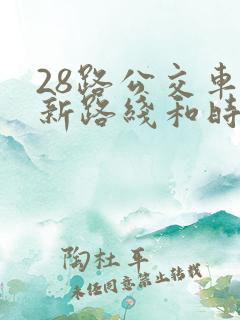 28路公交车
新路线和时
陶杜平
未经同意禁止转载